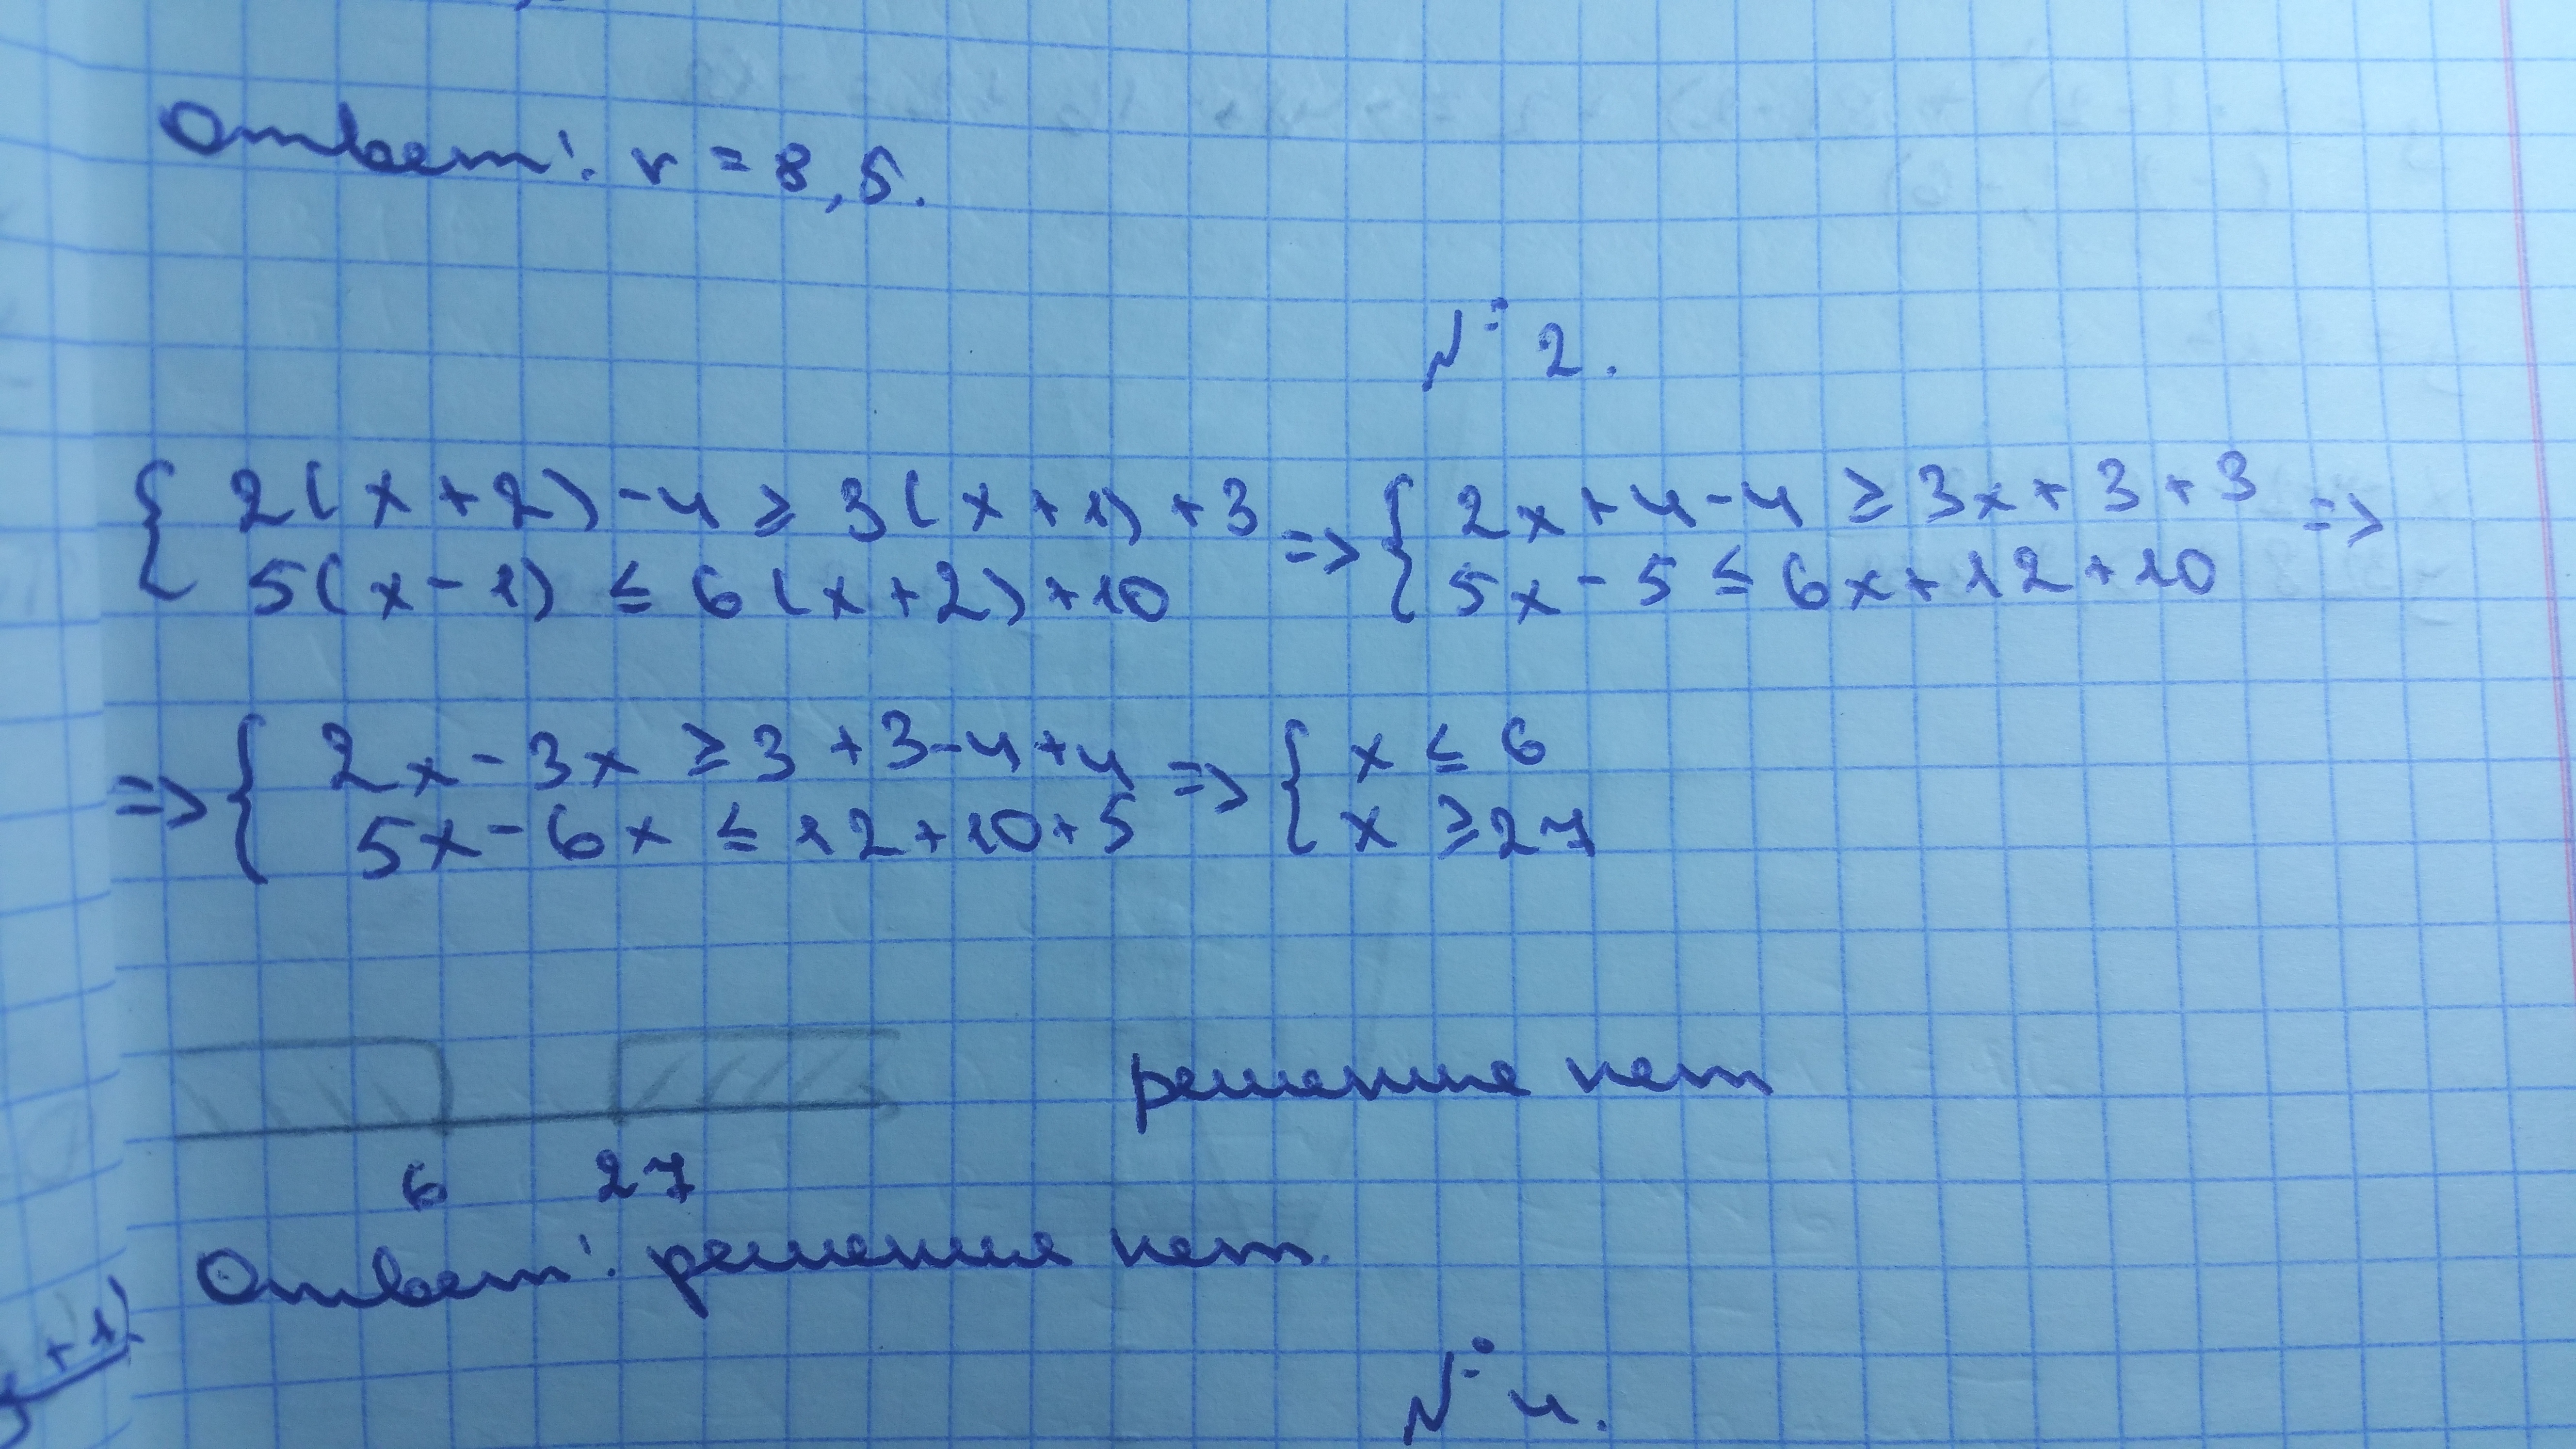 Ответ: r = 8,5.
№ 2.
{ 2(x+2)-4 ≥ 3(x+1)+3 => { 2x+4-4 ≥ 3x+3+3 =>
5(x-1) ≤ 6(x+2)+10 5x-5 ≤ 6x+12+10
=> { 2x-3x ≥ 3+3-4+4 => { x ≤ 6
5x-6x ≤ 12+10+5 x ≥ 27
решение нет
6 27
Ответ: решение нет.
+1)
№ 4.